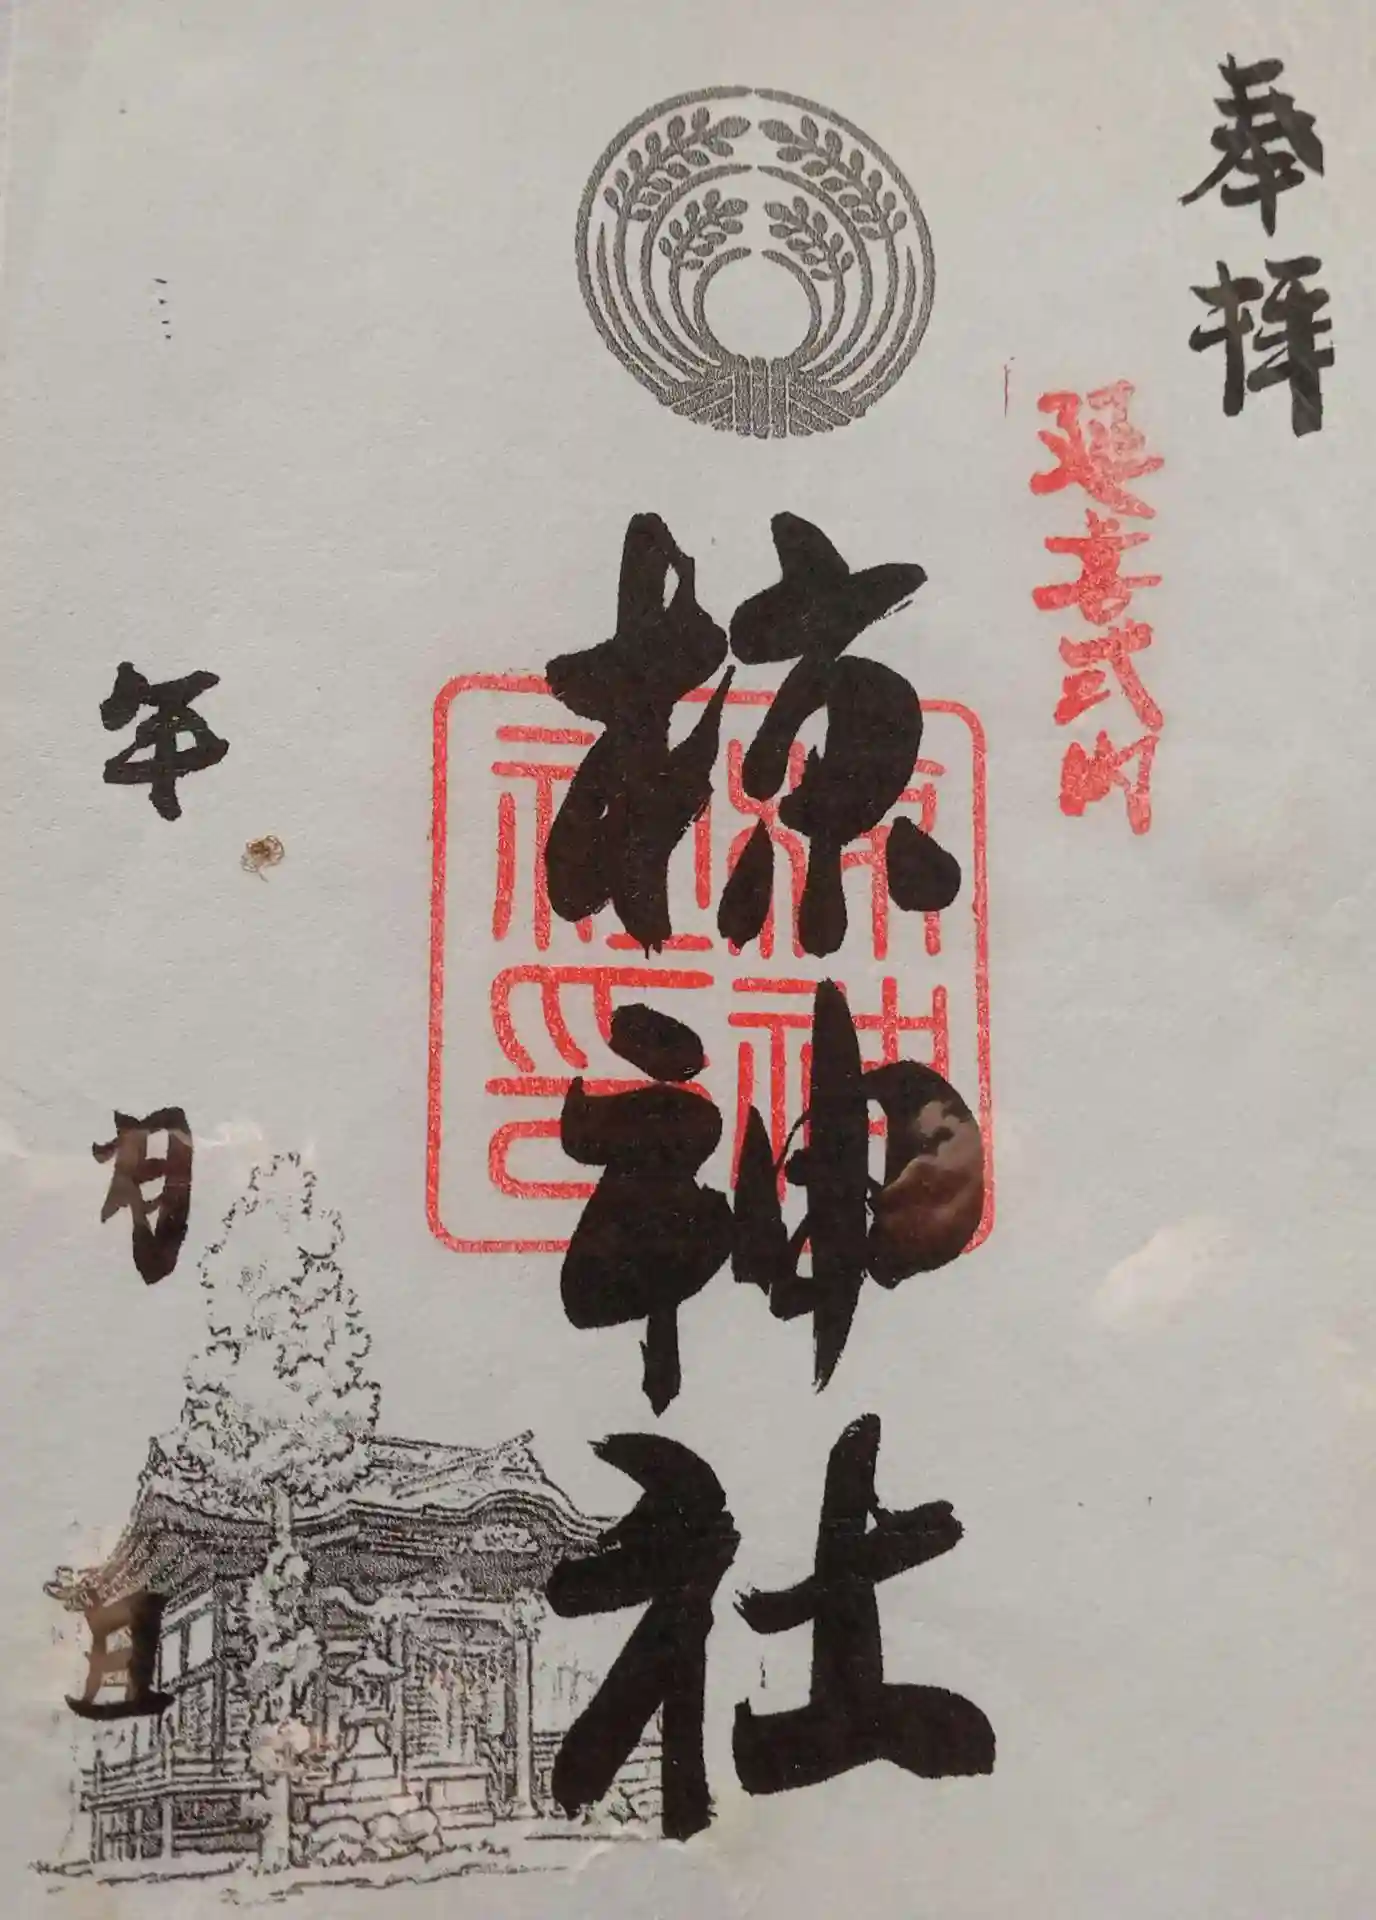 奉拝
延喜式内
椋神社
椋神
社印
年 月 日